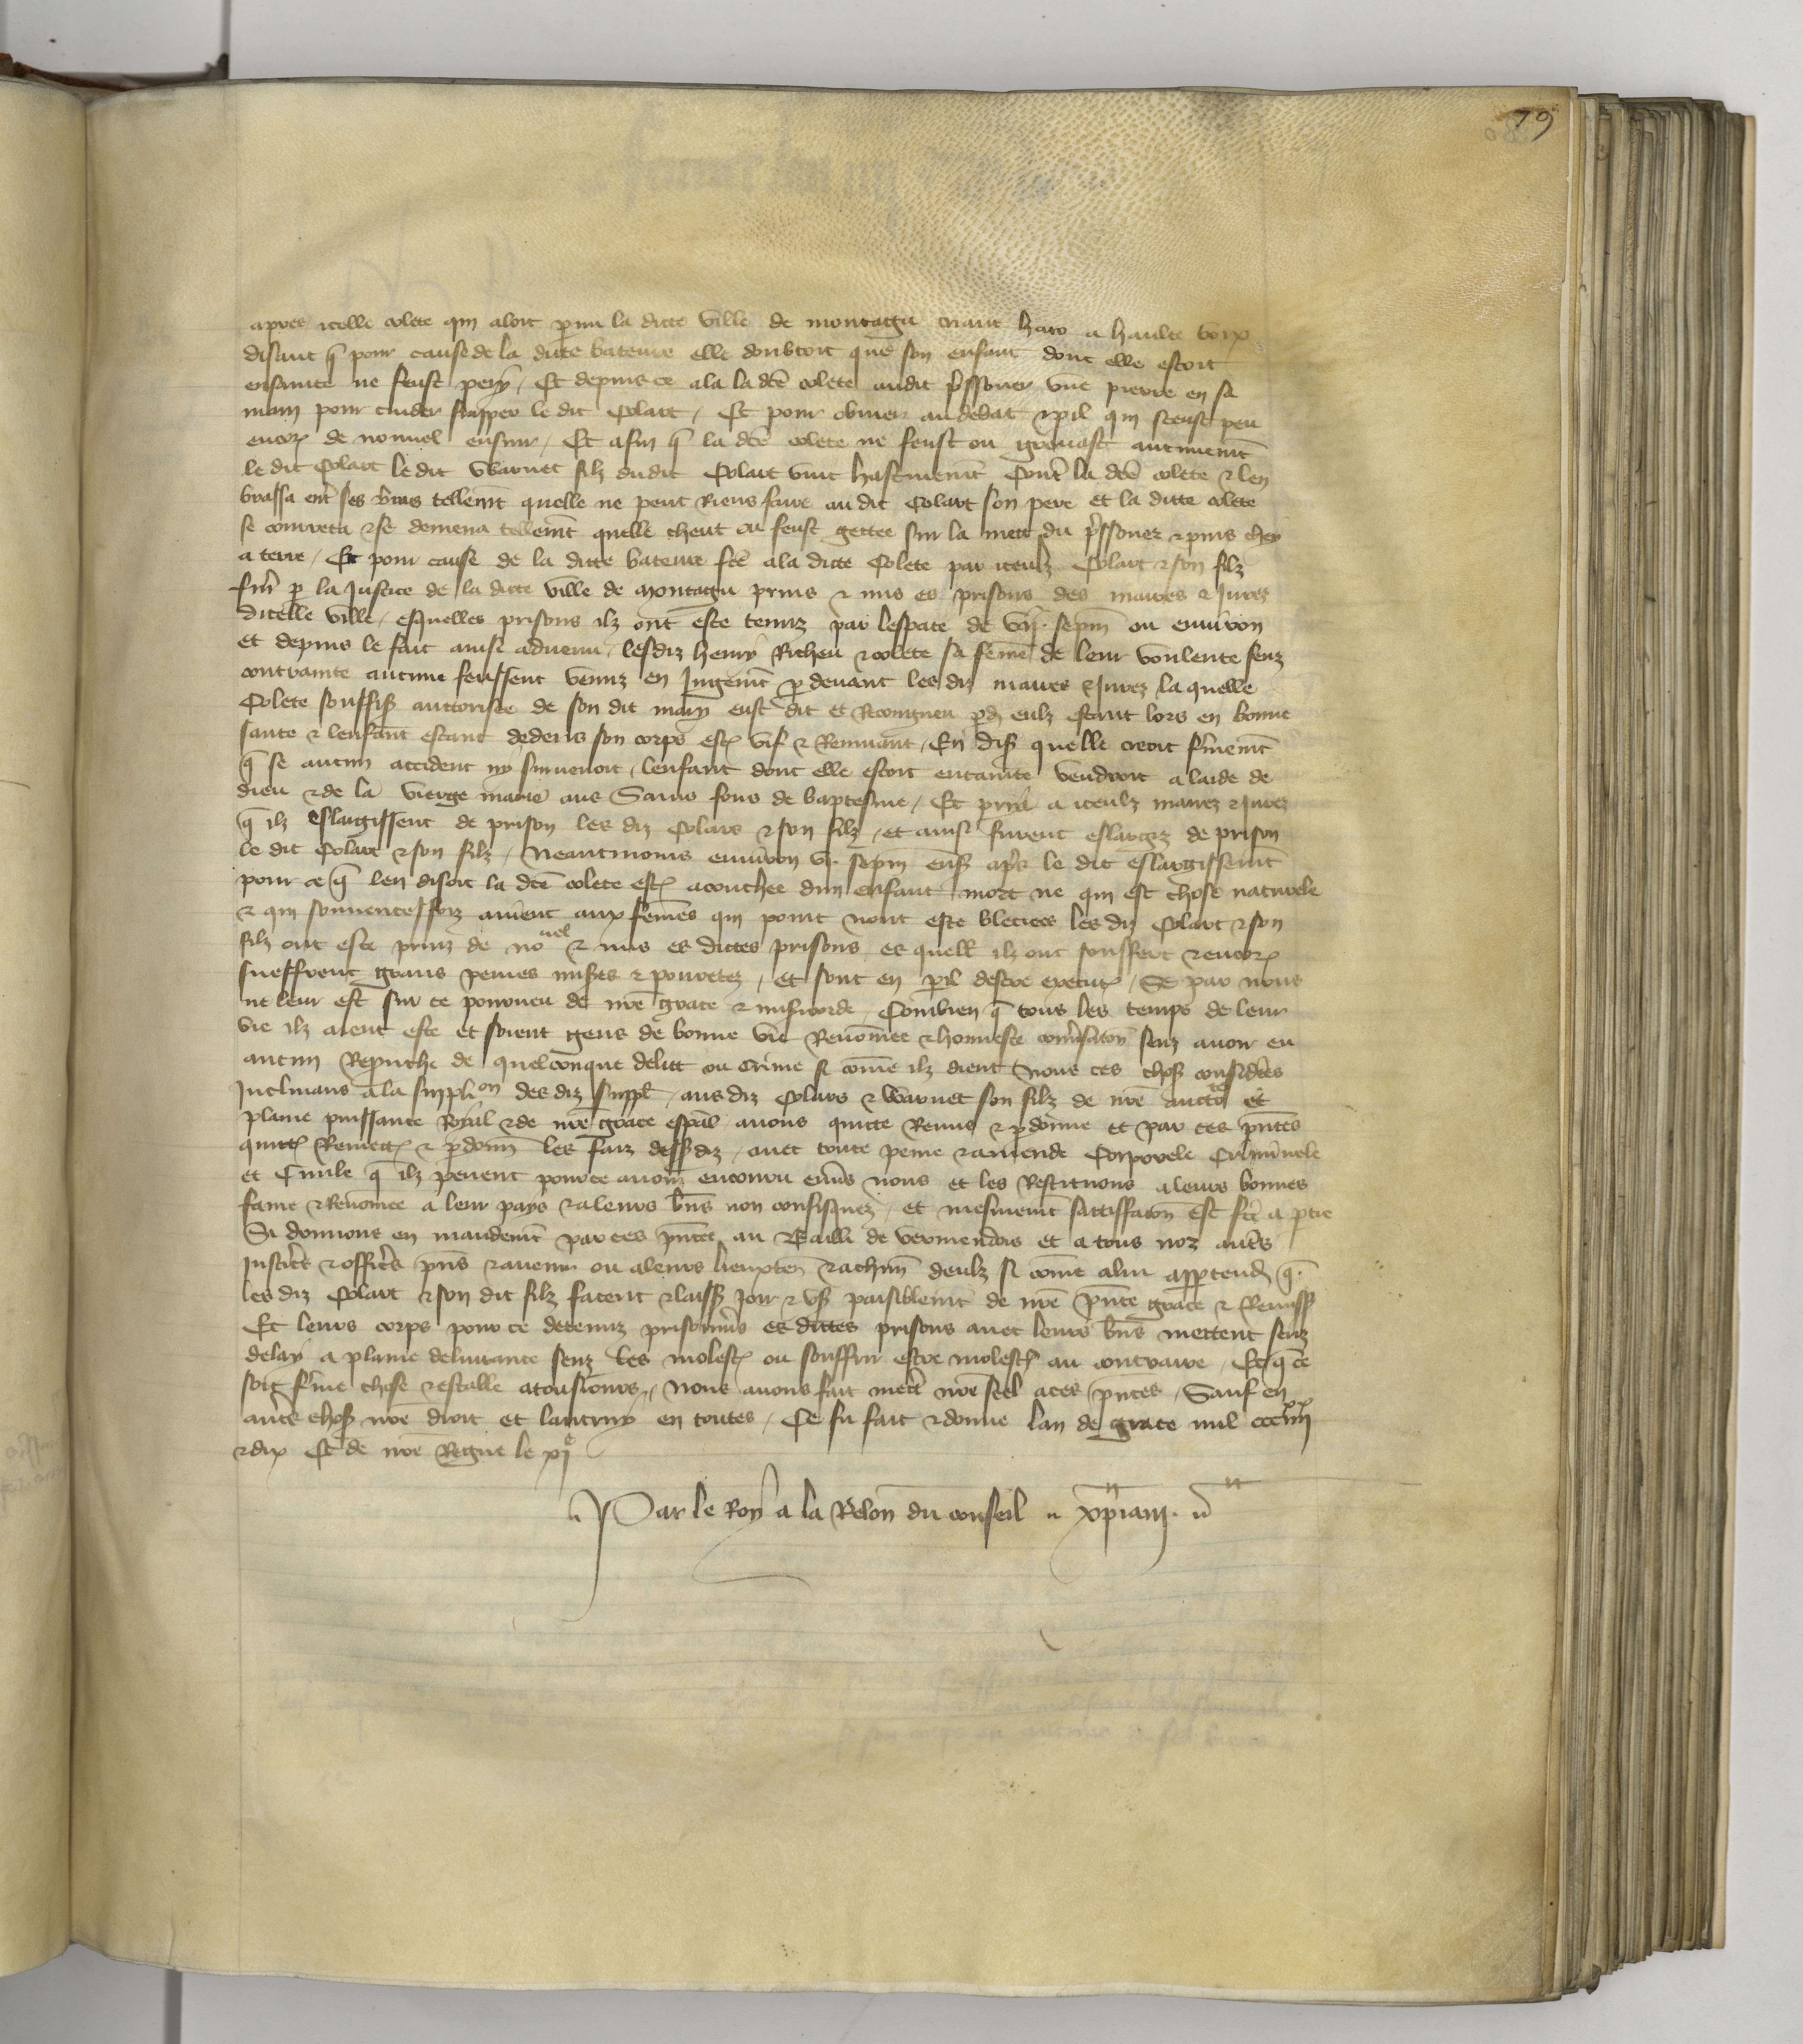 79
apres icelle colete qui aloit parmi la dicte ville de montagu criant haro a haulte voix
disant q̃ pour cause de la dicte bateure elle doubtoit que son enfant dont elle estoit
ensainte ne feust pery / Et depuis ce ala la dc̃e colete audit p̃ssouer vne pierre en sa
main pour cuider frapper le dit Colart / Et pour obuier au debat & p̃il qui s'en feust peu
encor̃ de nouuel ensuir / Et afin q̃ la dc̃e colete ne feust ou greuast aucunemt̃
le dit Colart le dit Warnet filz dudit Colart vint hastiuemt̃ Contr̃ la dc̃e colete & len
brassa entr̃ ses bras tellemt̃ quelle ne peut Riens faire au dit Colart son pere et la ditte colete
se courrecia & se demena tellemt̃ quelle cheut ou feust gettee sur la mett du p̃ssouer & puis chey
a terre / Et pour cause de la ditte bateure fc̃e a la dicte Colete par iceulx Colart & son filz
fur̃ p̱ la Justice de la dicte ville de Montagu prins & mis es prisons des maires & Jurez
dicelle ville / esquelles prisons ilz ont este tenuz par lespace de vij. sepm̃ ou enuiron
et depuis le fait ainsi aduenu / les diz henry Richeu & colete sa fem̃e de leur voulente senz
contrainte aucune feussent venuz en Jugemt̃ p̱ deuant les diz maires & Jurez la quelle
Colete souffis̃ auctorisee de son dit mary eust dit et Recongneu p̱d̃ eulz estant lors en bonne
sante & lenfant estant dedens son corps est̃ vif & Remuant / En dis̃ quelle creoit fermemt̃
q̃ se aucun accident ny suruenoit / lenfant dont elle estoit ensainte vendroit a laide de
dieu & de la vierge marie aus Sains fons de baptesme / Et pria a iceulz maires & Jurez
q̃ ilz eslargissent de prison les diz Colars & son filz / et ainsi furent eslargiz de prison
le dit Colart & son filz / Neantmoins enuiron vj. sepm̃ ens̃ apr̃s le dit eslargissemt̃
pour ce q̃ len disoit la dc̃e colete est̃ acouchee dun enfant mort ne qui est chose naturele
& qui souuentesfoiz auient aux fem̃es qui point nont este blecees les diz Colart & son
filz ont este prinz de nouuel & mis es dictes prisons / es quell̃ ilz ont souffert & encor̃
sueffrent grans peines mis̃es & pouretez / et sont en p̃il destre execut̃ / Se par nous
ne leur est sur ce pourueu de nr̃e grace & mis̃icorde / Combien q̃ tous les temps de leur
vie ilz aient este et soient gens de bonne vie Renom̃ee & honneste conu̓sacion̄ senz auoir eu
aucun Reprouche de quelconque delitt ou Crime si com̃e ilz dient Nous ces chos̃ consider̃es
Inclinans a la supplion des diz suppl̃ / aus diz Colars & Warnet son filz de nr̃e auctote et
plaine puissance Royal & de nr̃e grace esp̃al auons quicte Remis & p̱donne et par ces pñtes
quitt̃ Remett̃ & p̱donn̄ les faiz dess̃diz / auec toute peine & amende Corporele Criminele
et Ciuile q̃ ilz peuent pour ce auoir encouru enu̓s nous et les Restituons a leurs bonnes
fame & Renom̃ee a leur pays & a leurs bñs non confisquez / et mesmemt̃ sattisffacion̄ est fc̃e a p̱tie
Si donnons en mandemt̃ par ces pñtes au Bailli de vermendois et a tous noz autr̃s
Justiciers & officiers pñs & auenir ou a leurs lieuxten̄ & a chũn deulz si com̃e a lui app̱tend̃ q̃
les diz Colart & son dit filz facent & laiss̃ Joir & vs̃ paisiblemt̃ de nr̃e pñte grace & Remiss̃
Et leurs corps pour ce detenuz prisonniers es dittes prisons auec leurs bñs mettent senz
delay a plaine deliurance senz les molest̃ ou souffrir estre molest̃ au contraire / Et q̃ ce
soit ferme chose & estable a tousiours / Nous auons fait mettr̃ nr̃e scel a ces pñtes / Sauf en
autr̃s chos̃ nr̃e droit et lautruy en toutes / Ce fu fait & donne lan de grace mil ccc iiijxx
& dix Et de nr̃e Regne le xje
Par le Roy a la Relon̄ du conseil xp̃iani.